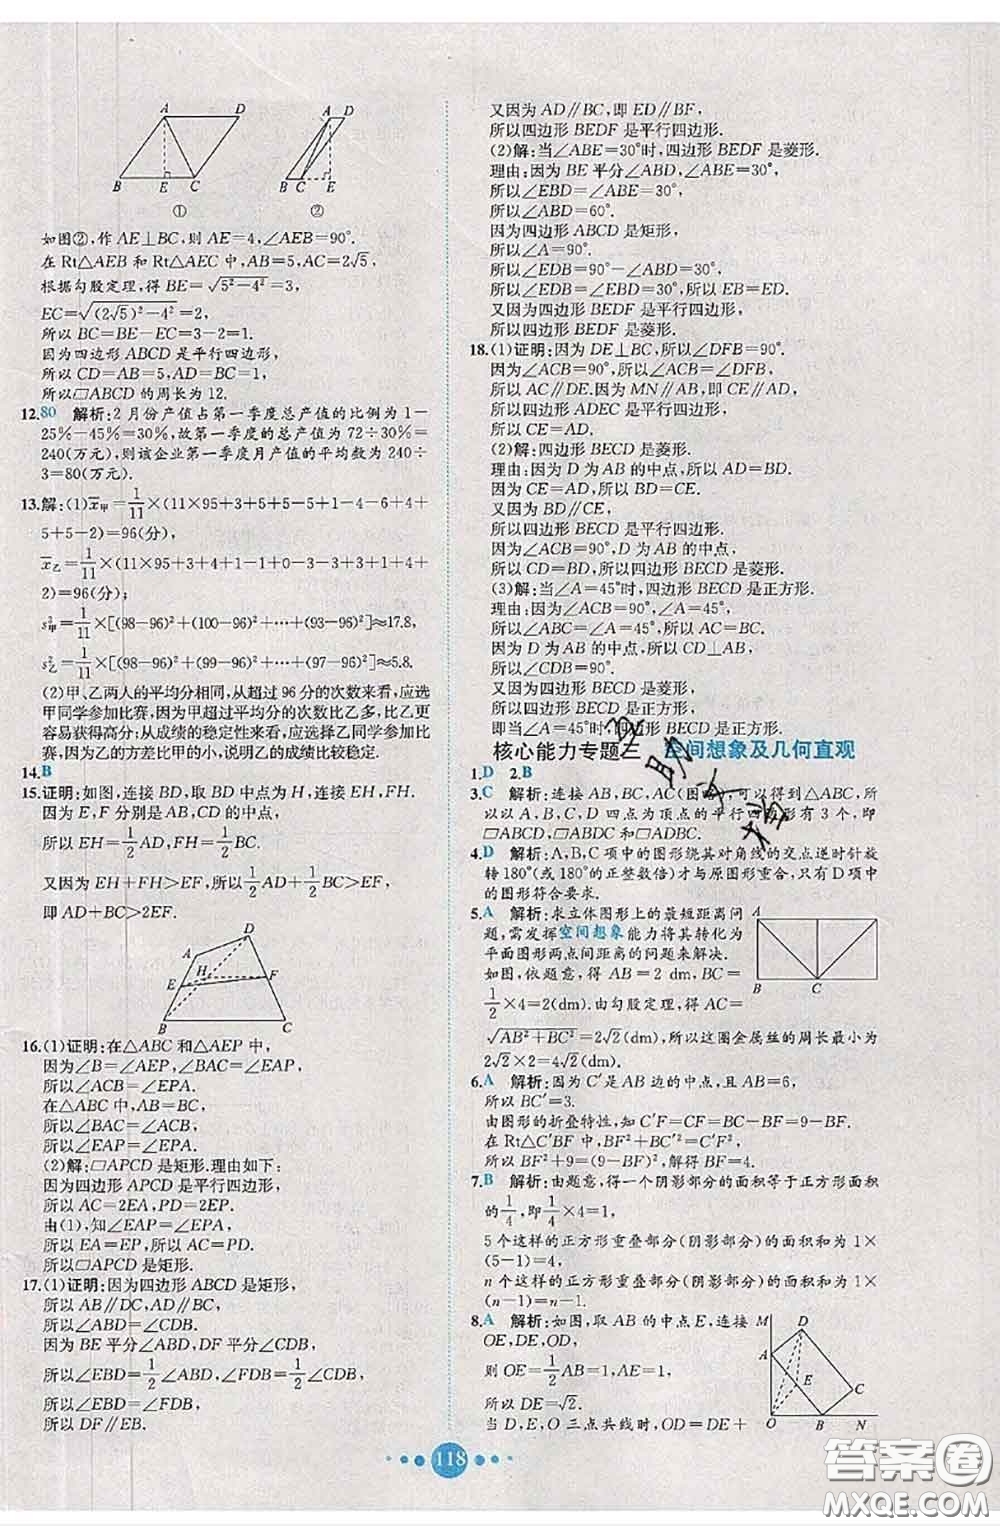 A D A D
B E C B C E
① ②
如图②,作 AE⊥BC,则 AE=4,∠AEB=90°.
在 Rt△AEB 和 Rt△AEC 中,AB=5,AC=2√5,
根据勾股定理,得 BE=√(5²-4²)=3,
EC=√((2√5)²-4²)=2,
所以 BC=BE-EC=3-2=1.
因为四边形 ABCD 是平行四边形,
所以 CD=AB=5,AD=BC=1.
所以▱ABCD 的周长为 12.
12.80 解析:2 月份产值占第一季度总产值的比例为 1-
25%-45%=30%,故第一季度的总产值为 72÷30%=
240(万元),则该企业第一季度月产值的平均数为 240÷
3=80(万元).
13.解:(1)x̄甲=1/11×(11×95+3+5+5-5+1-4+4+
5+5-2)=96(分),
x̄乙=1/11×(11×95+3+4+1-1+0-3+3+1+4+
2)=96(分);
s²甲=1/11×[(98-96)²+(100-96)²+…+(93-96)²]≈17.8,
s²乙=1/11×[(98-96)²+(99-96)²+…+(97-96)²]≈5.8.
(2)甲、乙两人的平均分相同,从超过 96 分的次数来看,应选
甲同学参加比赛,因为甲超过平均分的次数比乙多,比乙更
容易获得高分;从成绩的稳定性来看,应选乙同学参加比
赛,因为乙的方差比甲的小,说明乙的成绩比较稳定.
14.B
15.证明:如图,连接 BD,取 BD 中点为 H,连接 EH,FH.
因为 E,F 分别是 AB,CD 的中点,
所以 EH=1/2AD,FH=1/2BC.
又因为 EH+FH>EF,所以1/2AD+1/2BC>EF,
即 AD+BC>2EF.
D
A
H
E F
B C
16.(1)证明:在△ABC 和△AEP 中,
因为∠B=∠AEP,∠BAC=∠EAP,
所以∠ACB=∠EPA.
在△ABC 中,AB=BC,
所以∠BAC=∠ACB,
所以∠EAP=∠EPA.
(2)解:▱APCD 是矩形.理由如下:
因为四边形 APCD 是平行四边形,
所以 AC=2EA,PD=2EP.
由(1),知∠EAP=∠EPA,
所以 EA=EP,所以 AC=PD.
所以▱APCD 是矩形.
17.(1)证明:因为四边形 ABCD 是矩形,
所以 AB∥DC,AD∥BC,
所以∠ABD=∠CDB.
因为 BE 平分∠ABD,DF 平分∠CDB,
所以∠EBD=1/2∠ABD,∠FDB=1/2∠CDB,
所以∠EBD=∠FDB,
所以 DF∥EB.
又因为 AD∥BC,即 ED∥BF,
所以四边形 BEDF 是平行四边形.
(2)解:当∠ABE=30°时,四边形 BEDF 是菱形.
理由:因为 BE 平分∠ABD,∠ABE=30°,
所以∠EBD=∠ABE=30°,
所以∠ABD=60°.
因为四边形 ABCD 是矩形,
所以∠A=90°.
所以∠EDB=90°-∠ABD=30°,
所以∠EBD=∠EDB=30°,所以 EB=ED.
又因为四边形 BEDF 是平行四边形,
所以四边形 BEDF 是菱形.
18.(1)证明:因为 DE⊥BC,所以∠DFB=90°.
因为∠ACB=90°,所以∠ACB=∠DFB,
所以 AC∥DE.因为 MN∥AB,即 CE∥AD,
所以四边形 ADEC 是平行四边形,
所以 CE=AD.
(2)解:四边形 BECD 是菱形.
理由:因为 D 为 AB 的中点,所以 AD=BD.
因为 CE=AD,所以 BD=CE.
又因为 BD∥CE,
所以四边形 BECD 是平行四边形.
因为∠ACB=90°,D 为 AB 的中点,
所以 CD=BD,所以四边形 BECD 是菱形.
(3)解:当∠A=45°时,四边形 BECD 是正方形.
理由:因为∠ACB=90°,∠A=45°,
所以∠ABC=∠A=45°,所以 AC=BC.
因为 D 为 AB 的中点,所以 CD⊥AB,
所以∠CDB=90°.
又因为四边形 BECD 是菱形,
所以四边形 BECD 是正方形,
即当∠A=45°时,四边形 BECD 是正方形.
核心能力专题二 空间想象及几何直观
1.D 2.B
3.C 解析:连接 AB,BC,AC(图略),可以得到△ABC,所
以以 A,B,C,D 四点为顶点的平行四边形有 3 个,即
▱ABCD,▱ABDC 和▱ADBC.
4.D 解析:A,B,C 项中的图形绕其对角线的交点逆时针旋
转 180°(或 180°的正整数倍)才与原图形重合,只有 D 项中
的图形符合要求.
5.A 解析:求立体图形上的最短距离问
题,需发挥空间想象能力将其转化为
平面图形两点间距离的问题来解决.
如图,依题意,得 AB=2 dm,BC=
1/2×4=2(dm).由勾股定理,得 AC=
√(AB²+BC²)=2√2(dm),所以这圈金属丝的周长最小为
2√2×2=4√2(dm).
A
B C
6.A 解析:因为 C′是 AB 边的中点,且 AB=6,
所以 BC′=3.
由图形的折叠特性,知 C′F=CF=BC-BF=9-BF.
在 Rt△C′BF 中,BF²+BC′²=C′F²,
所以 BF²+9=(9-BF)²,解得 BF=4.
7.B 解析:由题意,得一个阴影部分的面积等于正方形面积
的1/4,即1/4×4=1,
5 个这样的正方形重叠部分(阴影部分)的面积和为 1×
(5-1)=4,
n 个这样的正方形重叠部分(阴影部分)的面积和为 1×
(n-1)=n-1.
8.A 解析:如图,取 AB 的中点 E,连接
OE,DE,OD,
则 OE=1/2AB=1,
所以 DE=√2.
当 D,E,O 三点共线时,OD=DE+
M
D
A
E
C
O B N
118
答案圈
MXQE.COM